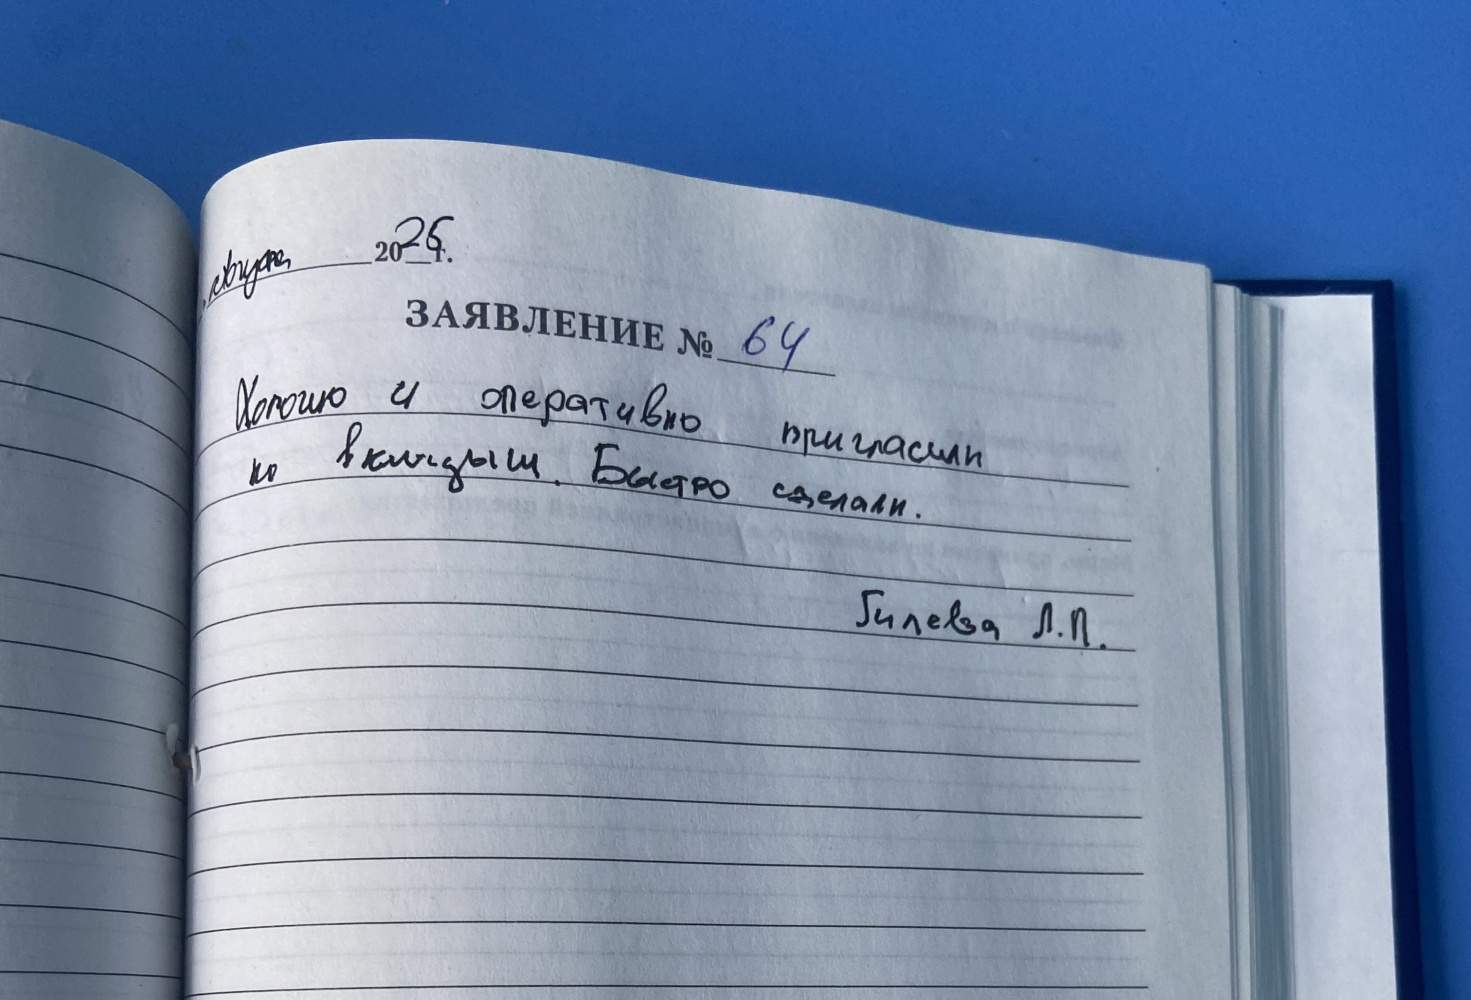 августа 2025г.
ЗАЯВЛЕНИЕ № 64
Хорошо и оперативно пригласили
на вкладыш. Быстро сделали.
Гилева Л.П.